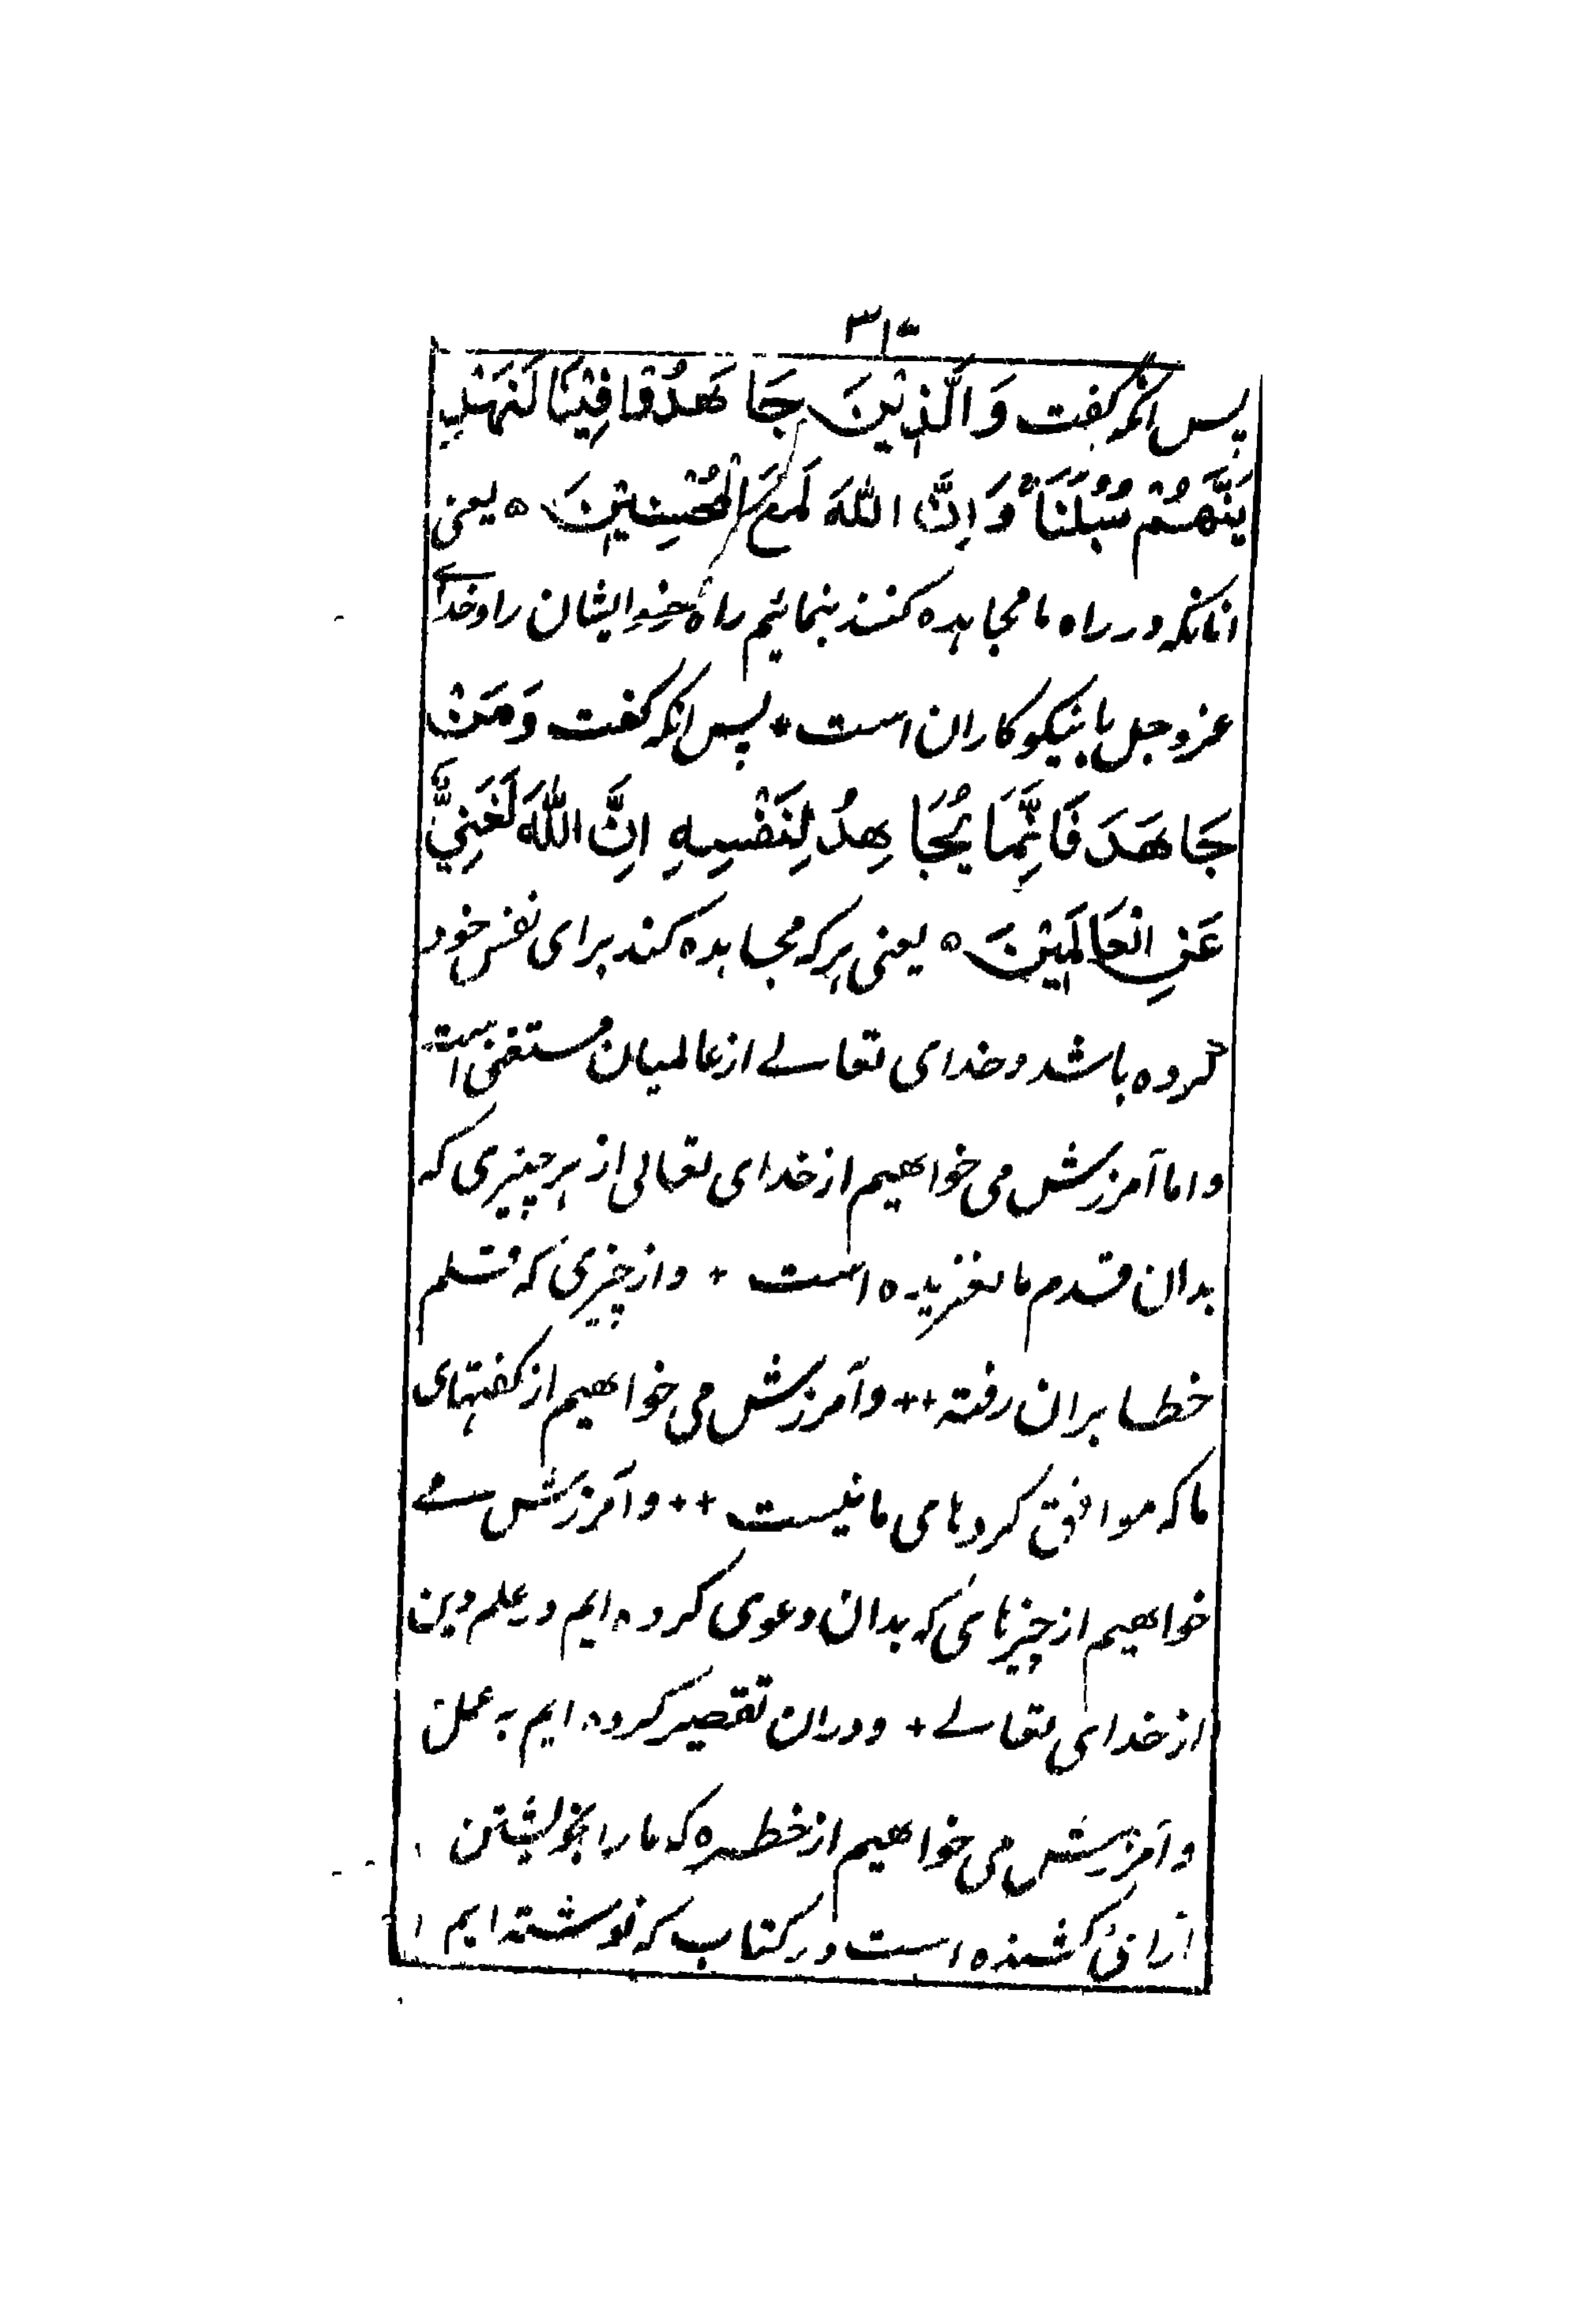 پس انکه گفت وَالَّذِیْنَ جَاهَدُوْا فِیْنَا لَنَهْدِ
یَنَّهُمْ سُبُلَنَا وَ اِنَّ اللّٰهَ لَمَعَ الْمُحْسِنِیْنَ ه یعنی
انانکه در راه ما مجاهده کنند بنمائیم راه خود ایشان را و خدای
عز و جل با نیکو کاران است * پس انکه گفت وَ مَنْ
جَاهَدَ فَاِنَّمَا یُجَاهِدُ لِنَفْسِهِ اِنَّ اللّٰهَ لَغَنِیٌّ
عَنِ الْعَالَمِیْنَ ه یعنی هر که مجاهده کند برای نفس خود
کرده باشد و خدای تعالے از عالمیان مستغنی است
و اما آمرزش می خواهیم از خدای تعالی از هر چیزی که
بدان قدم ما لغزیده است + و از چیزی که قلم
خطا بران رفته ++ و آمرزش می خواهیم از گفتهای
ما که موافق کردهای ما نیست ++ و آمرزش مے
خواهیم از چیزهائی که بدان دعوی کرده ایم در علم دین
از خدای تعالے + و دران تقصیر کرده ایم به عمل
و آمرزش می خواهیم از خطره که ما را بخویشتن
آرائی کشنده است در کتاب که نوشته ایم